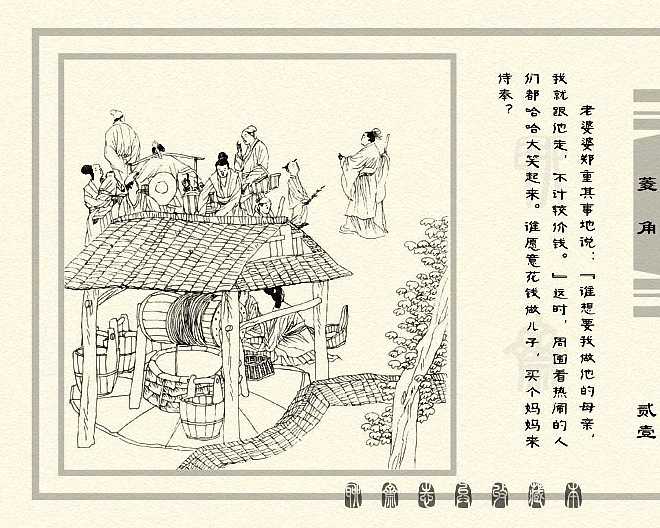 老婆婆郑重其事地说：『谁想要我做他的母亲，
我就跟他走，不计较价钱。』这时，周围看热闹的人
们都哈哈大笑起来。谁愿意花钱做儿子，买个妈妈来
侍奉？
菱角
贰壹